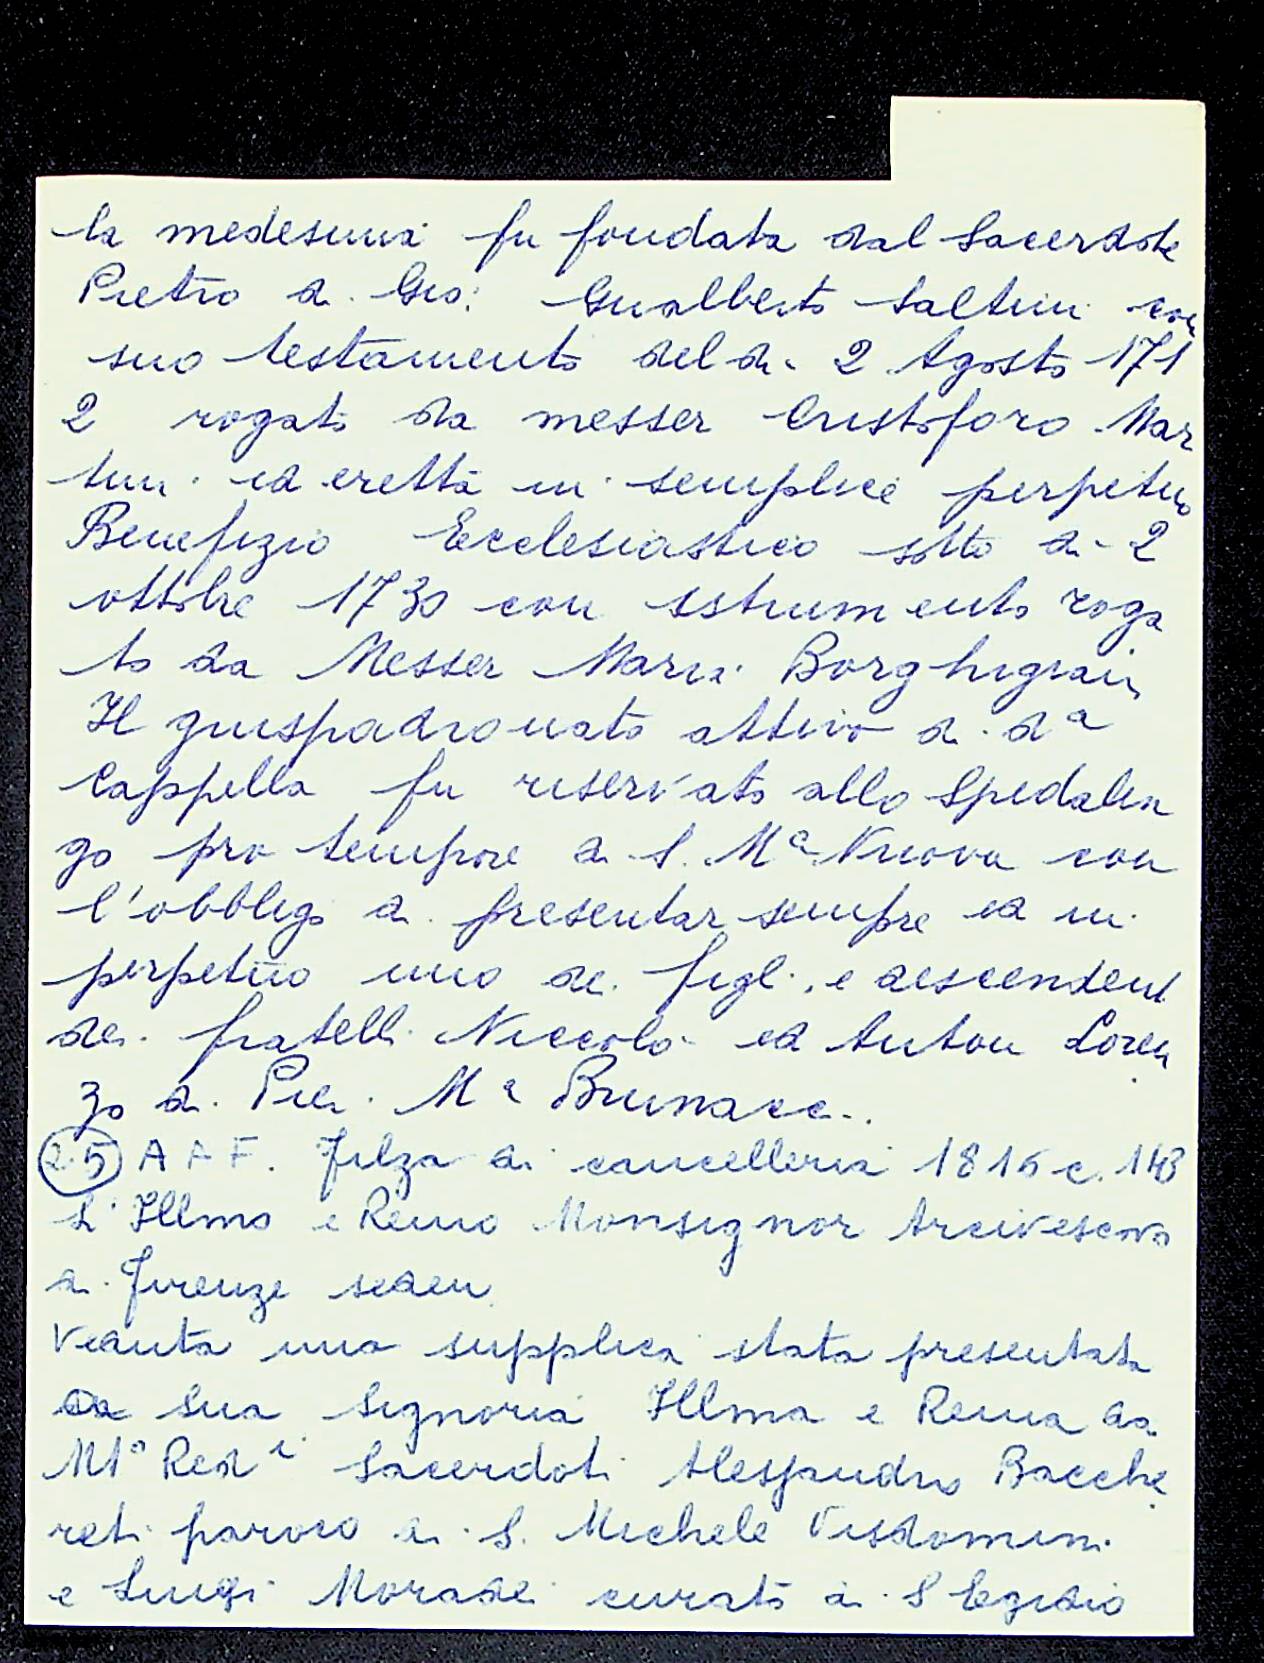 la medesima fu fondata dal Sacerdote
Pietro di Gio: Gualberto Saltini con
suo testamento del dì 2 Agosto 171
2 rogato da messer Cristoforo Mar
tini ed eretta in semplice perpetuo
Benefizio Ecclesiastico sotto dì 2
ottobre 1730 con istrumento roga
to da Messer Maria Borghigiani
Il giuspadronato attivo di dª
Cappella fu riservato allo Spedalin
go pro tempore di S. Mª Nuova con
l'obbligo di presentar sempre ed in
perpetuo uno dei figli e descendenti
dei fratelli Niccolò ed Anton Loren
zo di Pier Mª Brunacci.
25 A A F. Filza di cancelleria 1816 c. 143
L'Illmo e Remo Monsignor Arcivescovo
di Firenze seden
Veduta una supplica stata presentata
a Sua Signoria Illma e Rema dai
Mtº Redi Sacerdoti Alessandro Bacche
reti paroco di S. Michele Visdomini
e Luigi Moradei curato di S Egidio